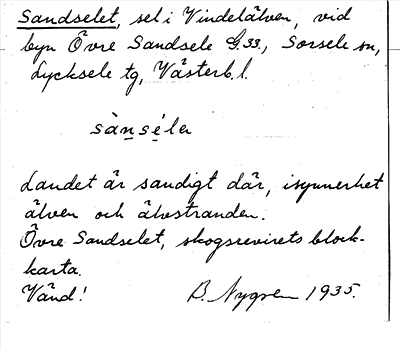 Sandselet, sel i Vindelälven, vid
byn Övre Sandsele G.33., Sorsele sn,
Lycksele tg, Västerb. l.
sànsélə
Landet är sandigt där, isynnerhet
älven och älvstranden.
Övre Sandselet, skogsrevirets block-
karta.
Vänd! B. Nygren 1935.